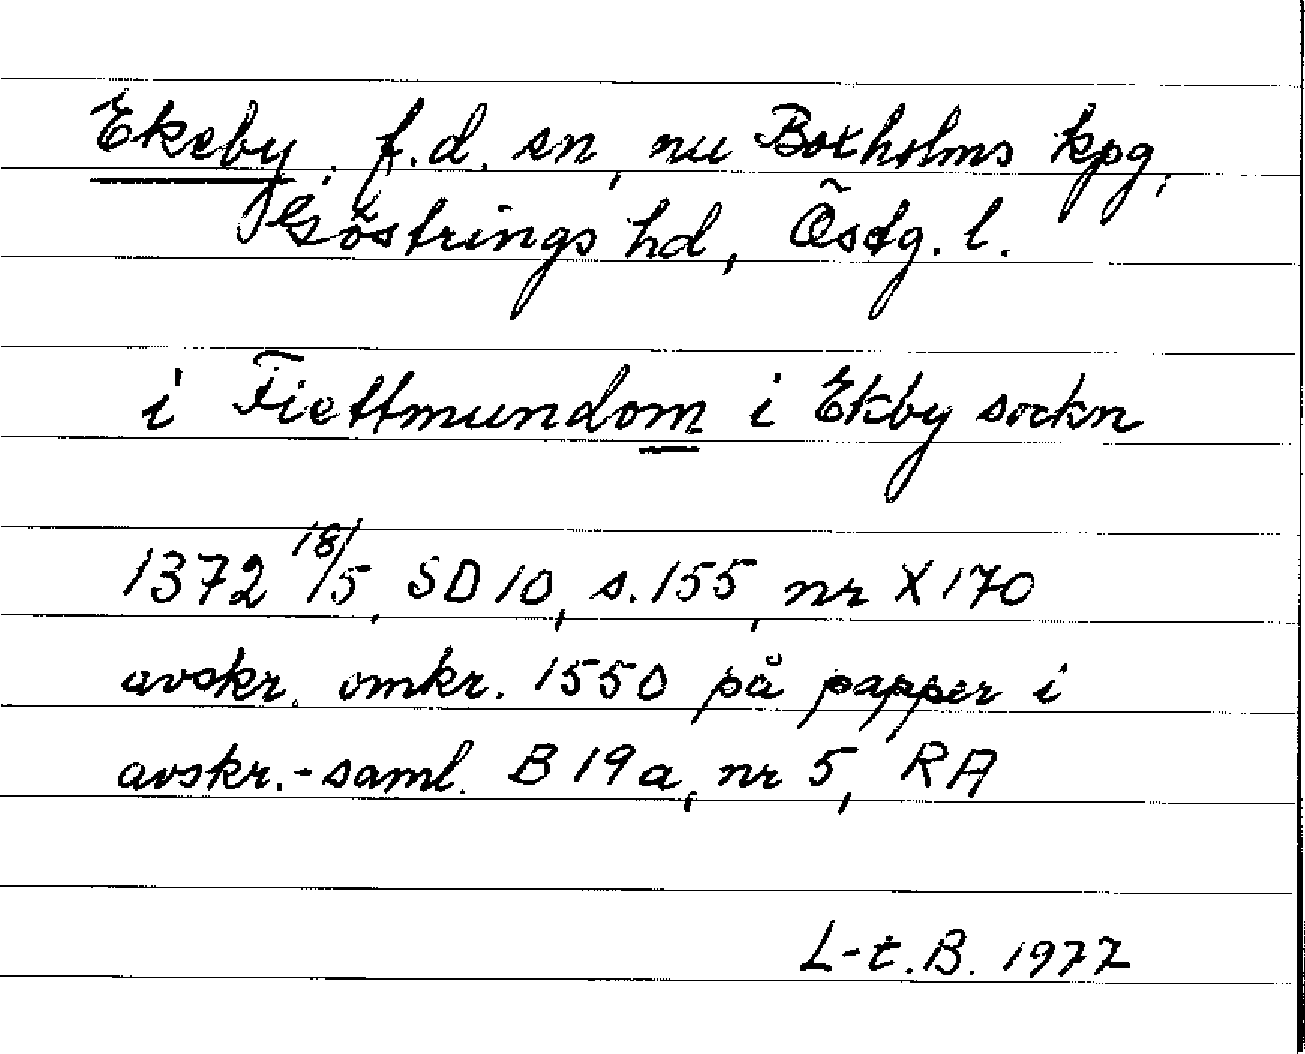 Ekeby, f.d. sn, nu Boxholms kpg,
Göstrings hd, Östg. l.
i Fiettmundom i Ekby sockn
1372 18/5, SD 10, s. 155, nr X 170
avskr. omkr. 1550 på papper i
avskr.-saml. B 19 a, nr 5, RA
L-t. B. 1977